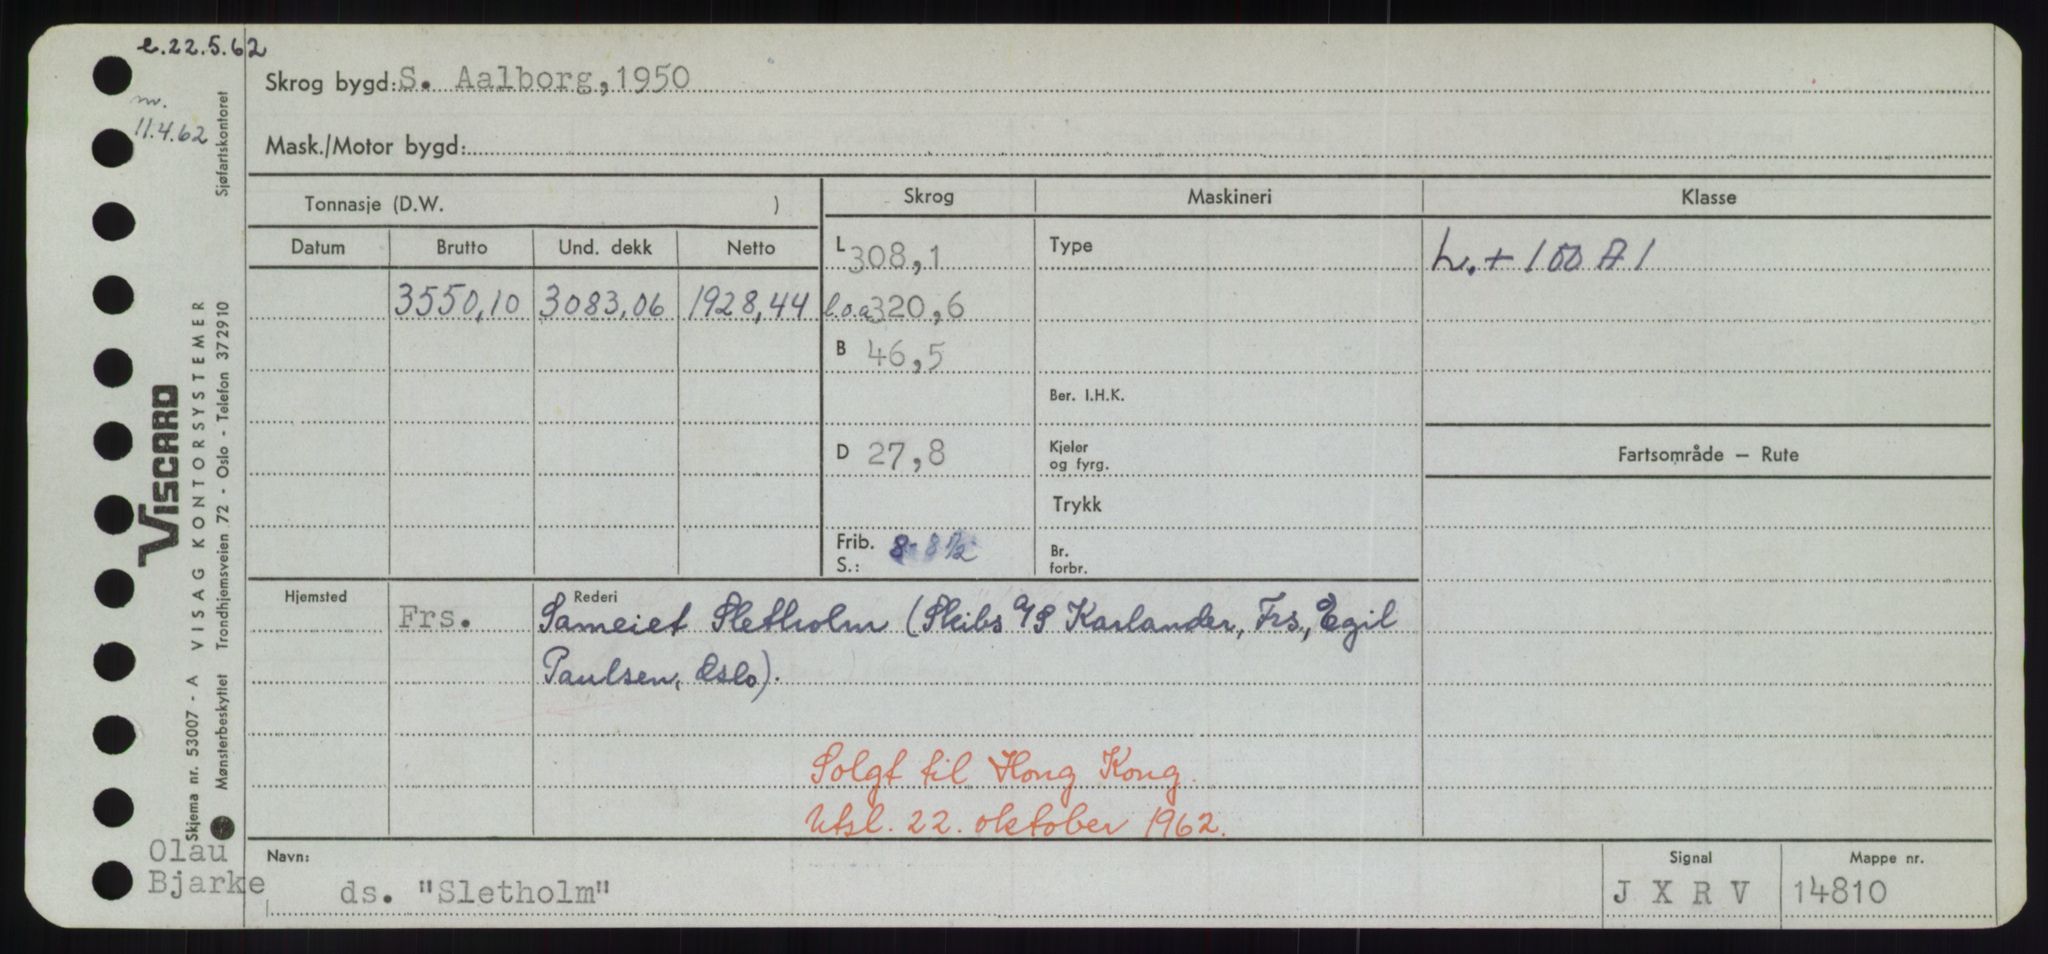 e.22.5.62
nv.
11.4.62
Skrog bygd: S. Aalborg, 1950
Mask./Motor bygd:
Tonnasje (D.W. )
Skrog
Maskineri
Klasse
Datum
Brutto
Und. dekk
Netto
L 308,1
Type
L. + 100 A 1
3550,10
3083,06
1928,44
l.o.a 320,6
B 46,5
Ber. I.H.K.
D 27,8
Kjeler
og fyrg.
Fartsområde — Rute
Trykk
Frib.
S.:
8- 8½
Br.
forbr.
Hjemsted
Frs.
Rederi
Sameiet Sletholm (Skibs A/S Karlander, Frs., Egil
Paulsen, Oslo).
Solgt til Hong Kong.
Utsl. 22. oktober 1962.
Olau
Bjarke
Navn:
ds. "Sletholm"
Signal
J X R V
Mappe nr.
14810
Sjøfartskontoret
VISCARD
VISAG KONTORSYSTEMER
Trondhjemsveien 72 - Oslo - Telefon 372910
Skjema nr. 53007 - A
Mønsterbeskyttet